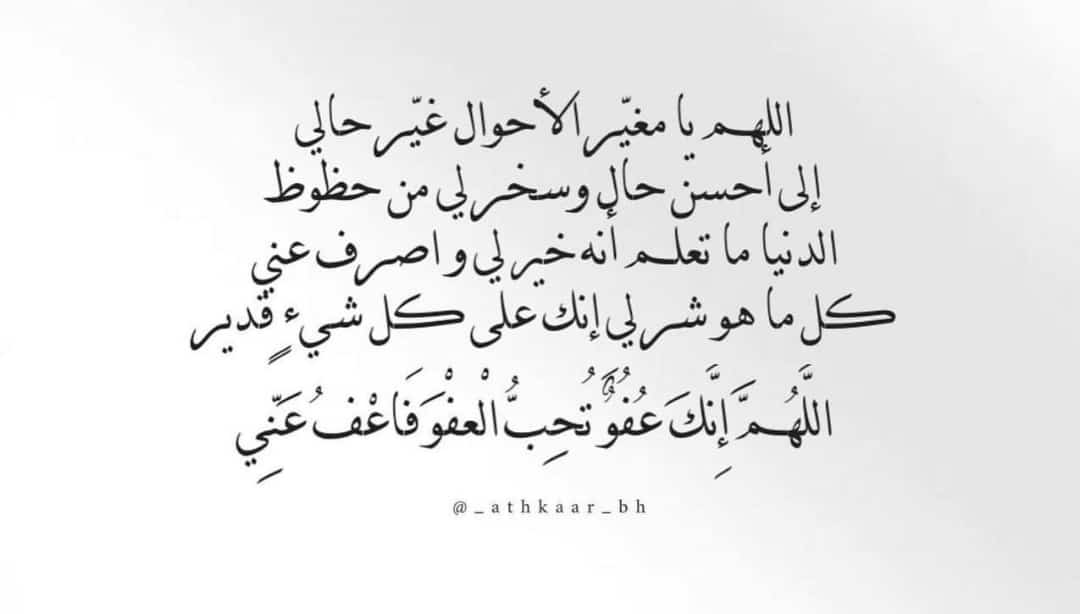 اللهم يا مغيّر الأحوال غيّر حالي
إلى أحسن حال وسخر لي من حظوظ
الدنيا ما تعلم أنه خير لي و اصرف عني
كل ما هو شر لي إنك على كل شيءٍ قدير
اللَّهُمَّ إِنَّكَ عَفُوٌّ تُحِبُّ الْعفْوَ فَاعْفُ عَنِّي
@_athkaar_bh